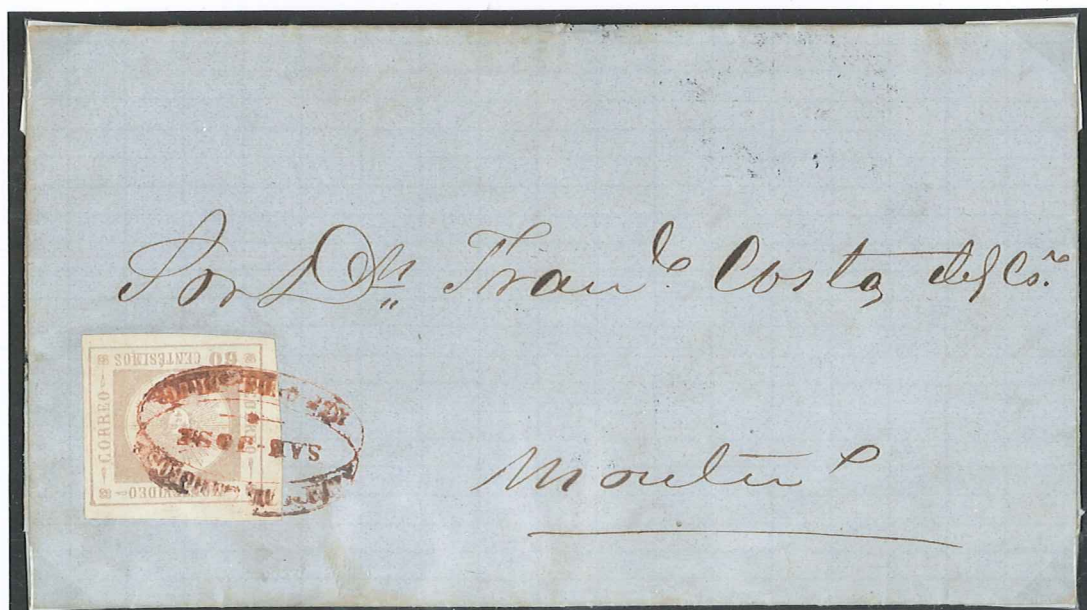 Sor Dn Franco Costa del Co.
Montevo
60 CENTÉSIMOS
CORREO
MONTEVIDEO
SAN-JOSE